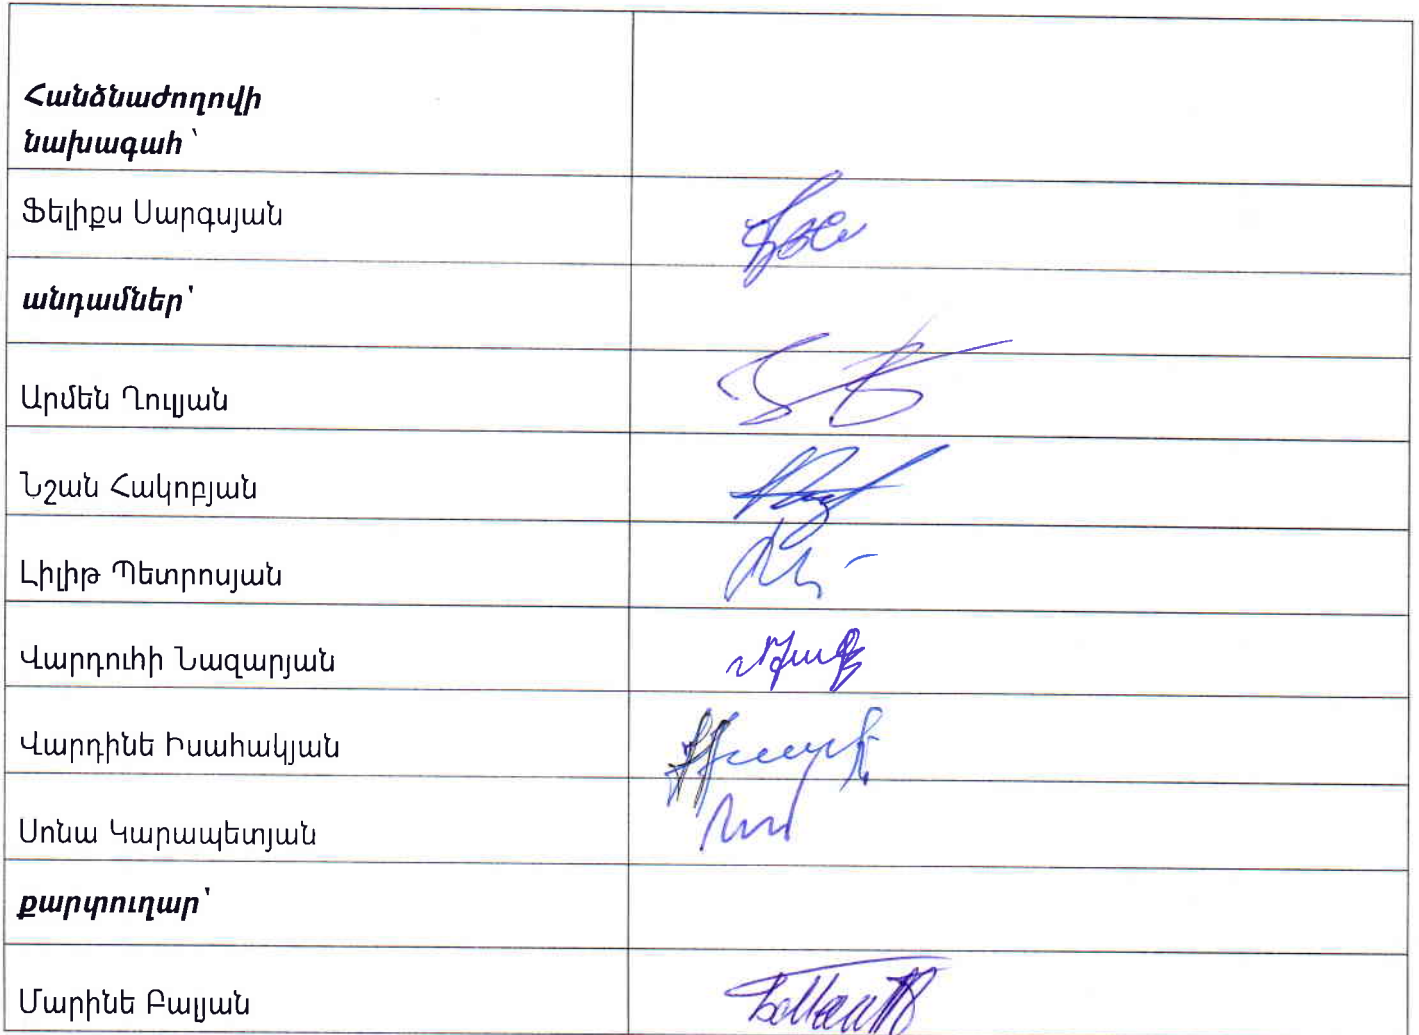 Հանձնաժողովի
նախագահ՝
Ֆելիքս Սարգսյան
անդամներ՝
Արմեն Ղուլյան
Նշան Հակոբյան
Լիլիթ Պետրոսյան
Վարդուհի Նազարյան
Վարդինե Իսահակյան
Սոնա Կարապետյան
քարտուղար՝
Մարինե Բալյան